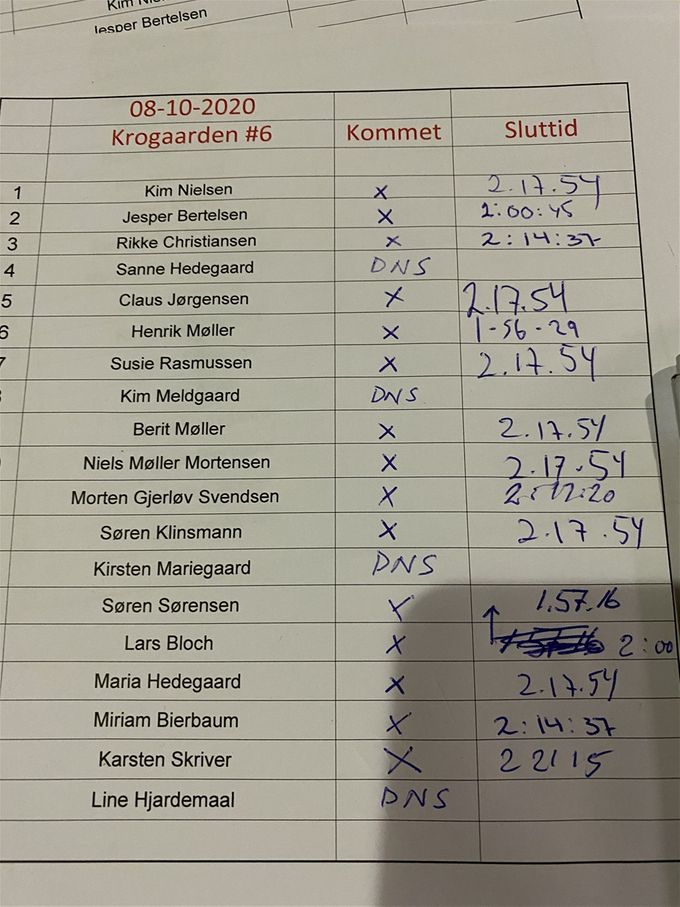 Kim
Jesper Bertelsen
08-10-2020
Krogaarden #6 Kommet Sluttid
1 Kim Nielsen X 2.17.54
2 Jesper Bertelsen X 2:00:45
3 Rikke Christiansen X 2:14:37
4 Sanne Hedegaard DNS
5 Claus Jørgensen X 2.17.54
6 Henrik Møller X 1-56-29
7 Susie Rasmussen X 2.17.54
Kim Meldgaard DNS
Berit Møller X 2.17.54
Niels Møller Mortensen X 2.17.54
Morten Gjerløv Svendsen X
Søren Klinsmann X 2.17.54
Kirsten Mariegaard DNS
Søren Sørensen X 1.57.16
Lars Bloch X 2:00
Maria Hedegaard X 2.17.54
Miriam Bierbaum X 2:14:37
Karsten Skriver X 2 21 15
Line Hjardemaal DNS